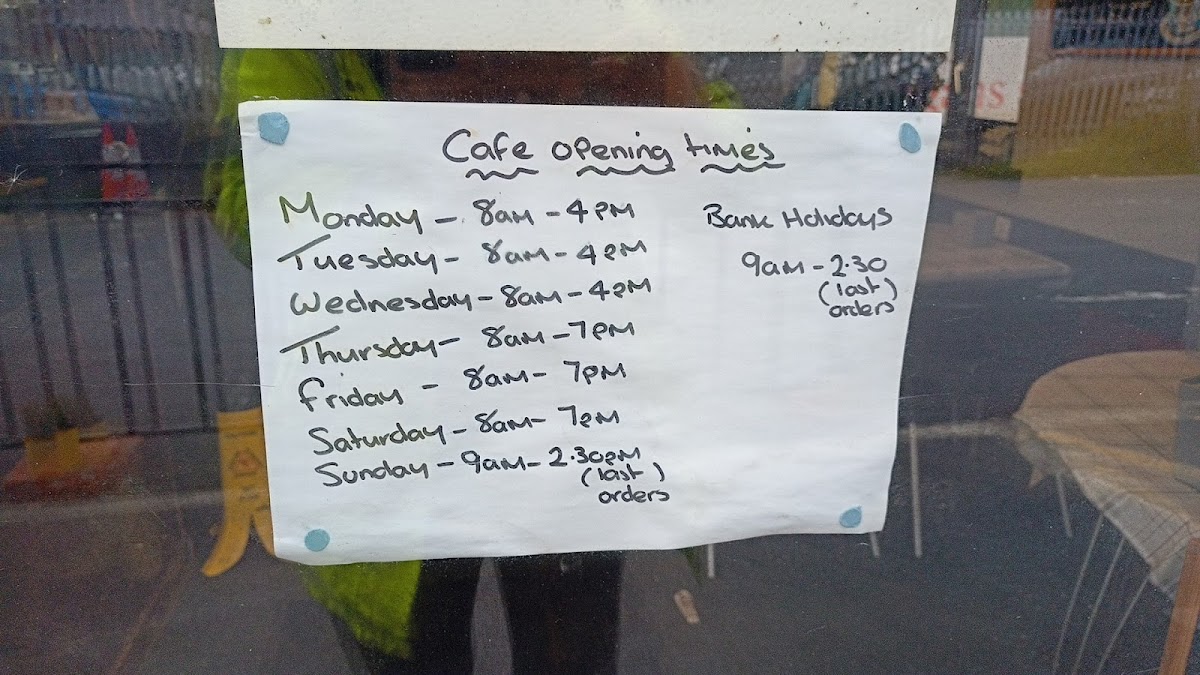 Cafe opening times
Monday - 8am - 4PM
Tuesday - 8am - 4PM
Wednesday - 8am - 4PM
Thursday - 8am - 7PM
Friday - 8am - 7PM
Saturday - 8am - 7PM
Sunday - 9am - 2.30PM
(last)
orders
Bank Holidays
9am - 2.30
(last)
orders